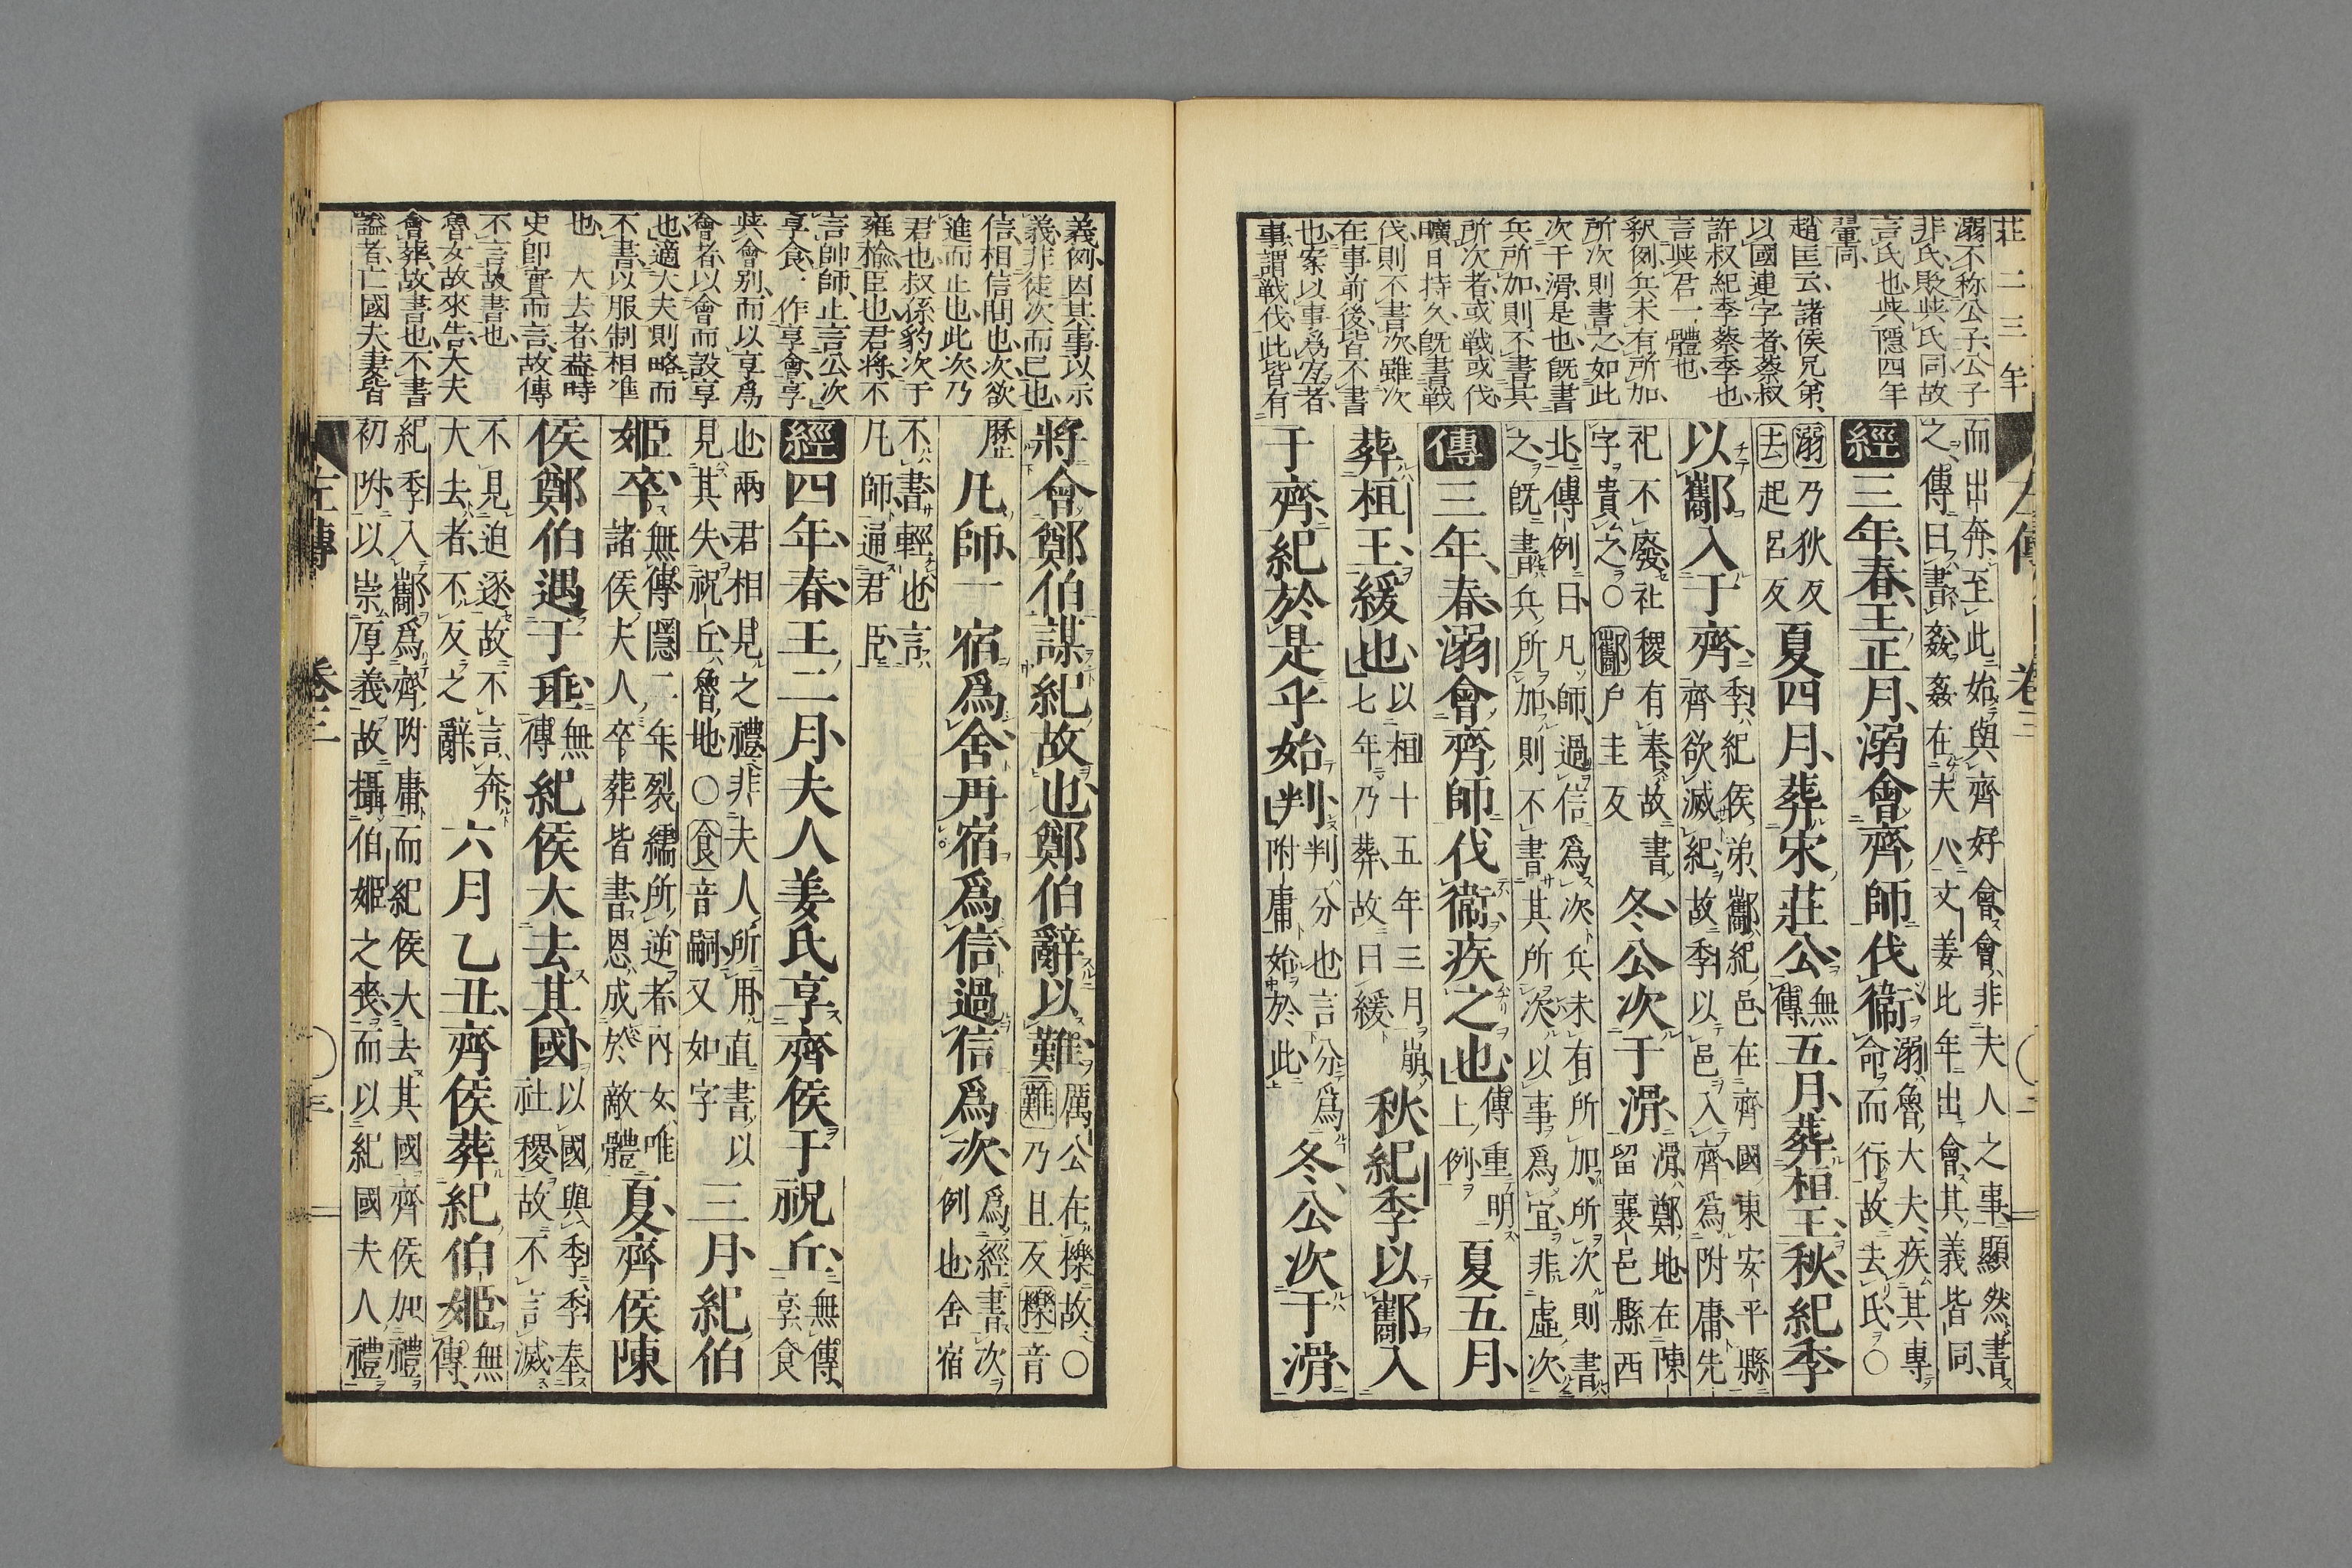 莊二三年
溺不称公子公子
非氏貶与氏同故
言氏也与隱四年
翬同
趙匡云諸侯兄弟
以國連字者蔡叔
許叔紀季蔡季也
言与君一體也
釈例兵未有所加
所次則書之如此
次于滑是也既書
兵所加則不書其
所次者或戦或伐
曠日持久既書戰
伐則不書次雖次
在事前後皆不書
也案以事爲宜者
事謂戦伐此皆有
左傳 卷三
而出奔至此始與齊好會會非夫人之事顯然書
之傳曰書姦姦在夫人文姜比年出會其義皆同
經三年春王正月溺會齊師伐衞溺魯大夫疾其專
命而行故去氏○
溺乃狄反
去起呂反夏四月葬宋莊公無
傳五月葬桓王秋紀季
以酅入于齊季紀侯弟酅紀邑在齊國東安平縣
齊欲滅紀故季以邑入齊爲附庸先
祀不廢社稷有奉故書
字貴之○酅戶圭反冬公次于滑滑鄭地在陳
留襄邑縣西
北傳例曰凡師過信爲次兵未有所加所次則書
之既書兵所加則不書其所次以事爲宜非虛次
傳三年春溺會齊師伐衞疾之也傳重明
上例夏五月
葬桓王緩也以桓十五年三月崩
七年乃葬故曰緩秋紀季以酅入
于齊紀於是乎始判判分也言分爲
附庸始於此冬公次于滑
義例因其事以示
義非徒次而已也
信相信間也次欲
進而止也此次乃
君也叔孫豹次于
雍楡臣也君将不
言帥師止言公次
享食一作享會享
与會別而以享爲
會者以會而設享
也適大夫則略而
不書以服制相准
也 大去者葢時
史卽實而言故傳
不言故書也
魯女故來告大夫
會葬故書也不書
謚者亡國夫妻皆
將會鄭伯謀紀故也鄭伯辭以難厲公在櫟故○
難乃且反櫟音
歷凡師一宿爲舍再宿爲信過信爲次爲經書次
例也舍宿
不書輕也言
凡師通君臣
經四年春王二月夫人姜氏享齊侯于祝丘無傳
享食
也兩君相見之禮非夫人所用直書以
見其失祝丘魯地○食音嗣又如字三月紀伯
姬卒無傳隱二年裂繻所逆者內女唯
諸侯夫人卒葬皆書恩成於敵體夏齊侯陳
侯鄭伯遇于垂無
傳紀侯大去其國以國與季季奉
社稷故不言滅
不見迫逐故不言奔
大去者不反之辭六月乙丑齊侯葬紀伯姬無
傳
紀季入酅爲齊附庸而紀侯大去其國齊侯加禮
初附以崇厚義故攝伯姬之喪而以紀國夫人禮
左傳 卷三 三